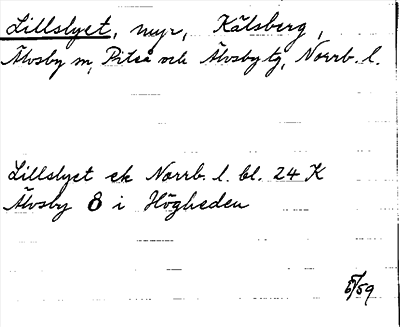 Lillslyet, myr, Kälsberg,
Älvsby m, Piteå och Älvsby tg, Norrb. l.
Lillslyet ek Norrb. l. bl. 24 K
Älvsby 8 i Högheden
5/59